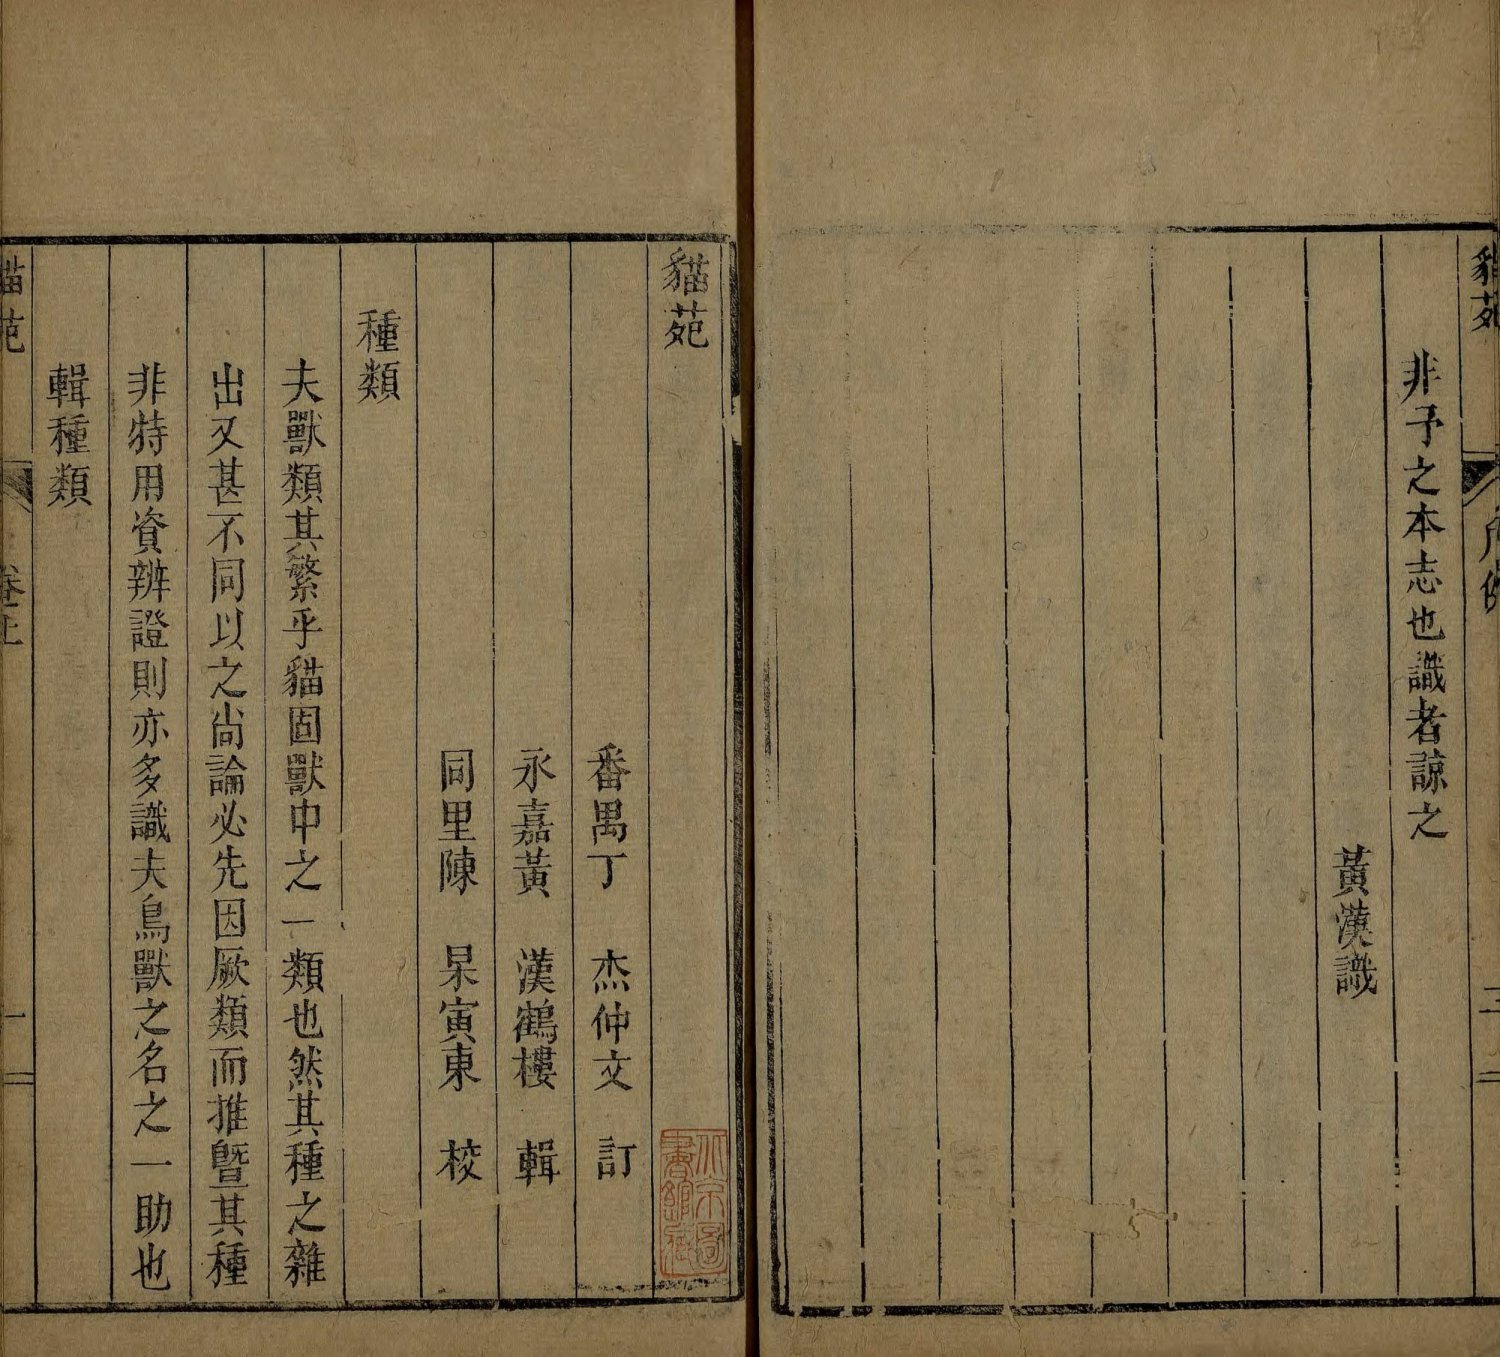 貓苑
凡例
二
非予之本志也識者諒之
黃漢識
貓苑
番禺丁　杰仲文　訂
永嘉黃　漢鶴樓　輯
同里陳　杲寅東　校
種類
夫獸類其繁乎貓固獸中之一類也然其種之雜
出又甚不同以之尚論必先因厥類而推曁其種
非特用資辨證則亦多識夫鳥獸之名之一助也
輯種類
貓苑
卷上
一